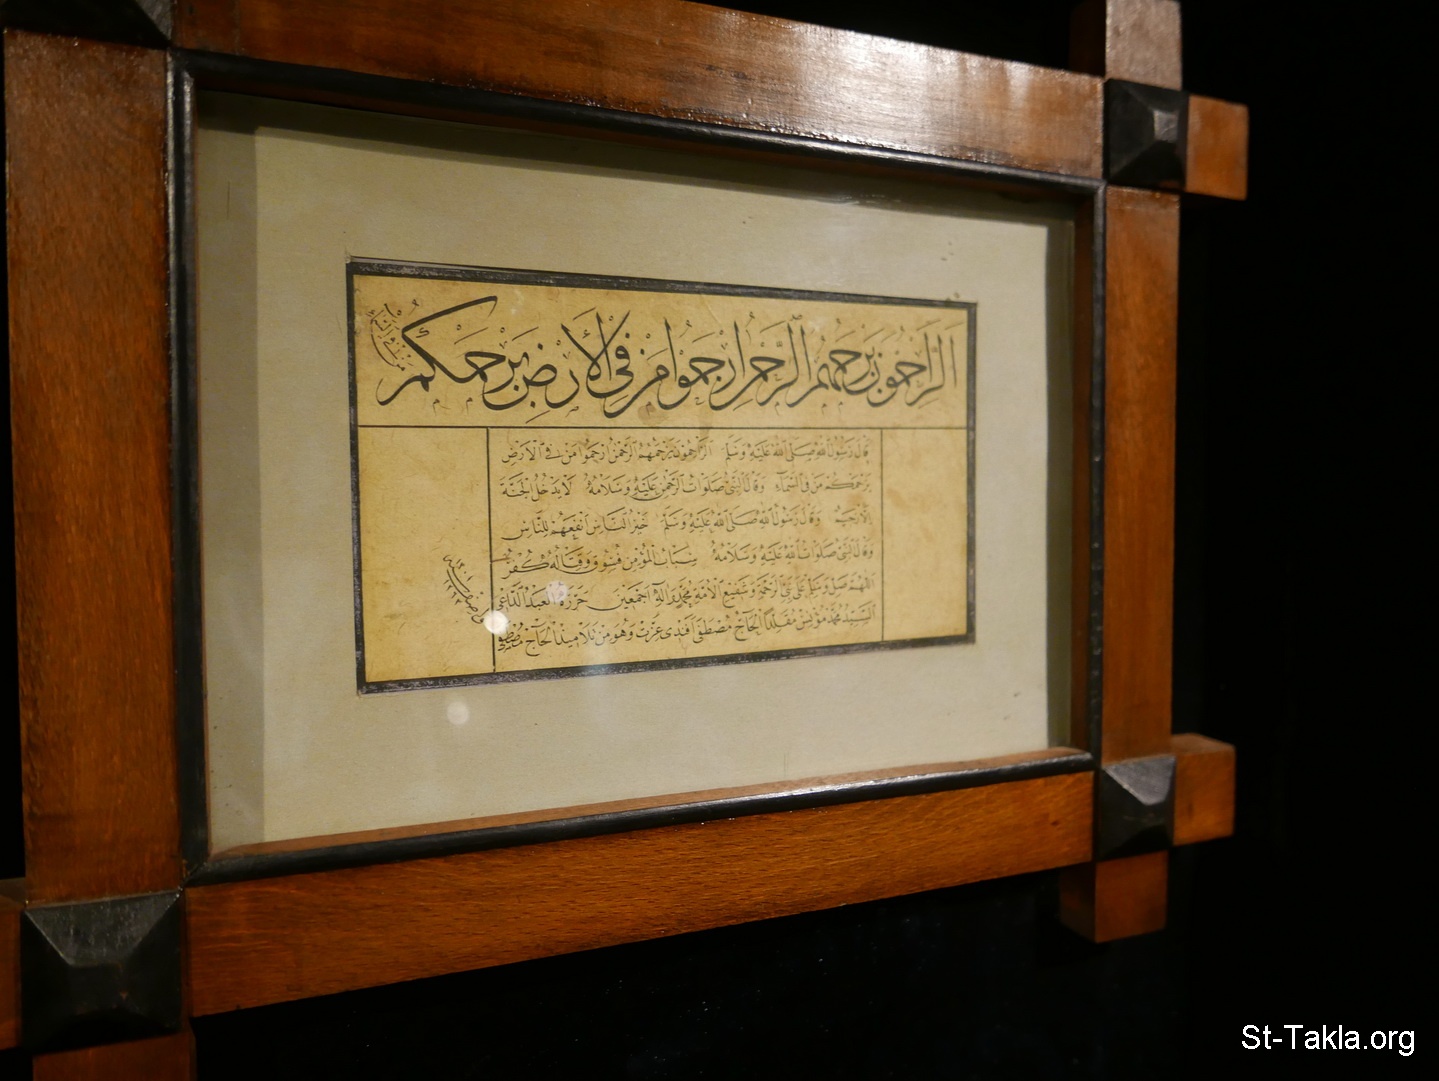 الراحمون يرحمهم الرحمن ارحموا من في الأرض يرحمكم
من في السماء
قال رسول الله صلى الله عليه وسلم الراحمون يرحمهم الرحمن ارحموا من في الأرض
يرحمكم من في السماء وقال النبي صلوات الرحمن عليه وسلامه لا يدخل الجنة
إلا رحيم وقال رسول الله صلى الله عليه وسلم خير الناس أنفعهم للناس
وقال النبي صلوات الله عليه وسلامه سباب المؤمن فسوق وقتاله كفر
اللهم صل وسلم على نبي الرحمة وشفيع الامة محمد وآله اجمعين حرره العبد الداعي
السيد محمد مؤنس مقلدا الحاج مصطفى افندى عزت وهو من تلاميذ الحاج مصطفى
St-Takla.org